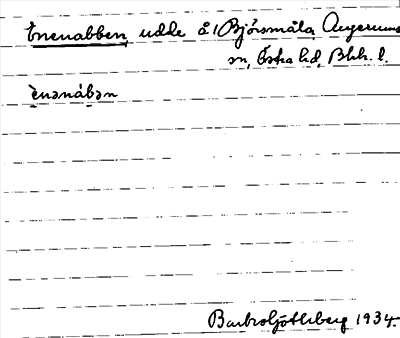 Enenabben, udde å 1 Björsmåla Augerums
sn, Östra hd, Blek. l.
è̱nənáḇən
Barbro Söderberg 1934.